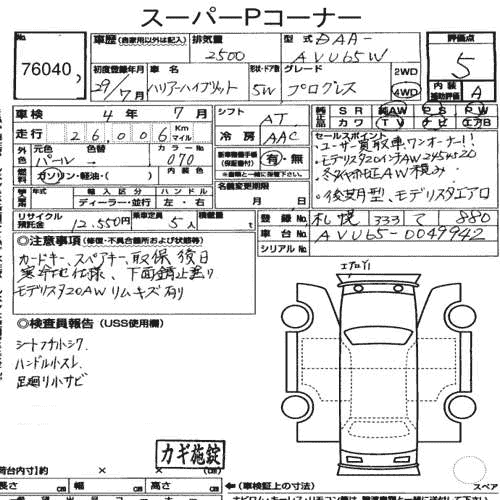 スーパーPコーナー
No. 76040
車歴(自家用以外は記入) 排気量 2500 型式 DAA-AVU65W 評価点 5
初度登録年月 29/7月 車名 ハリアーハイブリット 形状・ドア数 5W グレード プログレス 2WD 4WD 内装補助評価 A
車検 4年 7月 シフト AT 純正品 SR 純AW PS PW
走行 26,006 Km マイル 冷房 AAC カワ TV ナビ エアB
外色 元色 パール 色替 → カラーNo. 070 内装色
セールスポイント
・ユーザー買取車ワンオーナー!!
・モデリスタ20インチAW245/45/20
・冬タイヤ純正AW積み
・後期型、モデリスタエアロ
燃料 ガソリン・軽油・( ) 新車機種手帳(保証書付) 有・無
※自動車と一緒に搬入して下さい
年式 輸入区分 ディーラー・並行 ハンドル 左・右 名義変更期限 月 日
リサイクル預託金 12,550円 乗車定員 5人 積載量 t
登録No. 札幌 333 て 880
車台No. AVU65-0049942
シリアルNo.
◎注意事項(修復・不具合箇所および状態等)
カードキー、スペアキー、取保後日
寒冷地仕様、下面錆止塗り
モデリスタ20AWリムキズ有り
エアロ
◎検査員報告(USS使用欄)
シートフナ小シワ
ハンドル小スレ
足廻り小サビ
カギ施錠
荷台内寸)約 × ×
長さ cm 幅 cm 高さ cm ←(車検証上の寸法) スペア